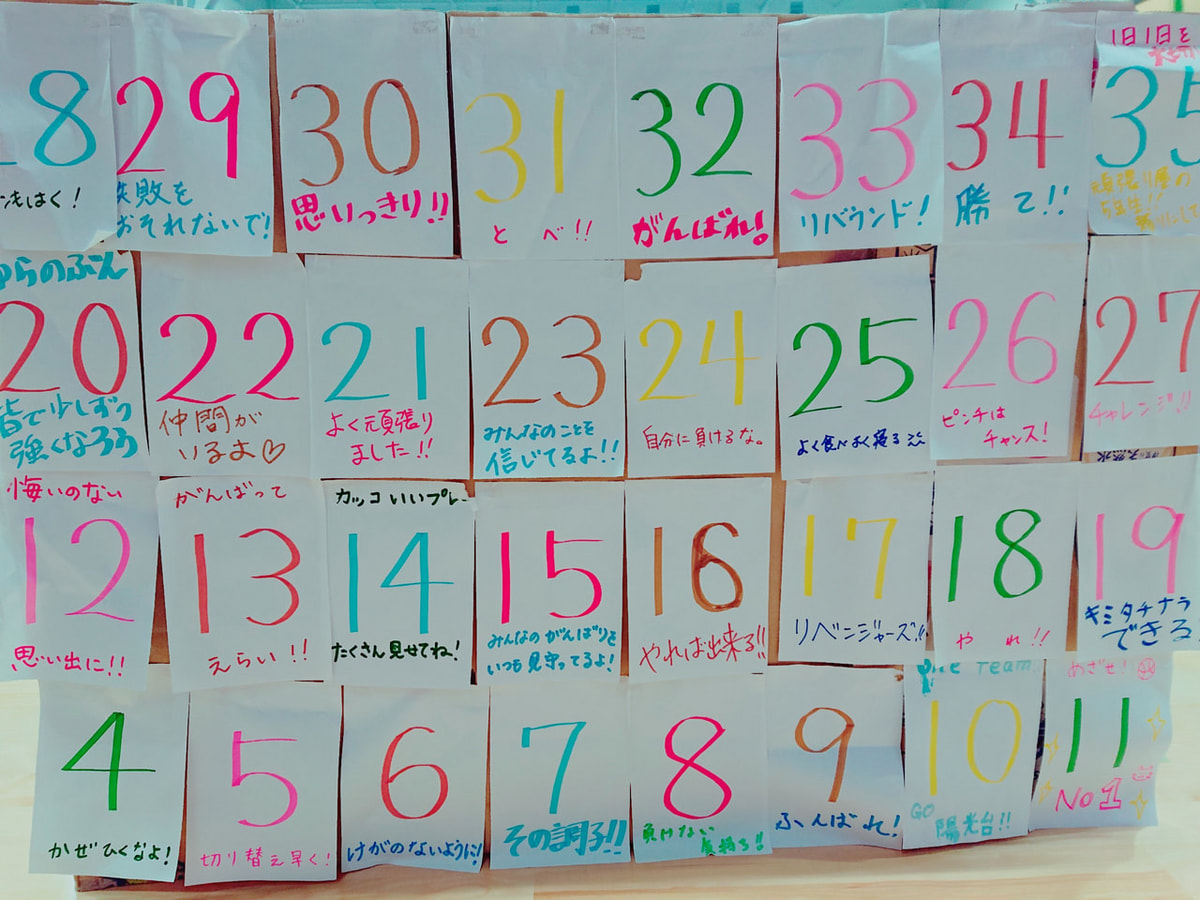 1日1日を
大切に
28
29
30
31
32
33
34
35
ンもはく!
失敗を
おそれないで!
思いっきり!!
とべ!!
がんばれ!
リバウンド!
勝て!!
頑張り屋の
5年生!!
のぶん
20
22
21
23
24
25
26
27
皆で少しずつ
強くなろう
仲間が
いるよ♡
よく頑張り
ました!!
みんなのことを
信じてるよ!!
自分に負けるな。
よく食べよく寝る
ピンチは
チャンス!
チャレンジ!!
天然水
悔いのない
がんばって
カッコいいプレー
12
13
14
15
16
17
18
19
思い出に!!
えらい!!
たくさん見せてね!
みんなのがんばりを
いつも見守ってるよ!
やれば出来る!!
リベンジャーズ!!
やれ!!
キミタチナラ
できる
Team
めざせ!
4
5
6
7
8
9
10
11
かぜひくなよ!
切り替え早く!
けがのないように!
その調子!!
負けない
気持ち!!
ふんばれ!
GO
陽光台!!
No1